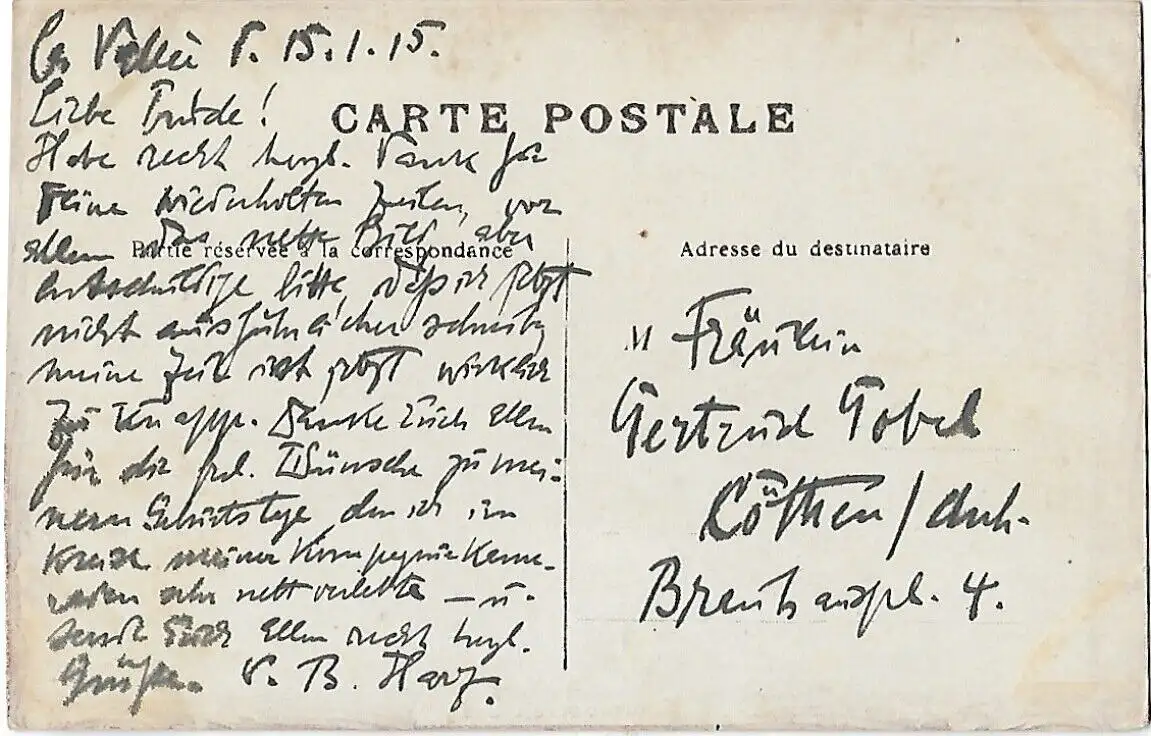 La Vallée d. 15.1.15.
Liebe Trude!
CARTE POSTALE
Habe recht herzl. Dank für
Deine wiederholten Zeilen, vor
allem das nette Bild, aber
Partie réservée à la correspondance
entschuldige bitte, daß ich jetzt
nicht ausführlicher schreibe,
meine Zeit ist jetzt wirklich
zu knapp. Danke Euch allen
für die frdl. Wünsche zu mei-
nem Geburtstage, den ich im
Kreise meiner Kompagniekame-
raden sehr nett verlebte – u.
sende Euch allen recht herzl.
Grüße. D. B.
Adresse du destinataire
Fräulein
Gertrud Tobel
Cöthen / Anh.
Breuhauspl. 4.